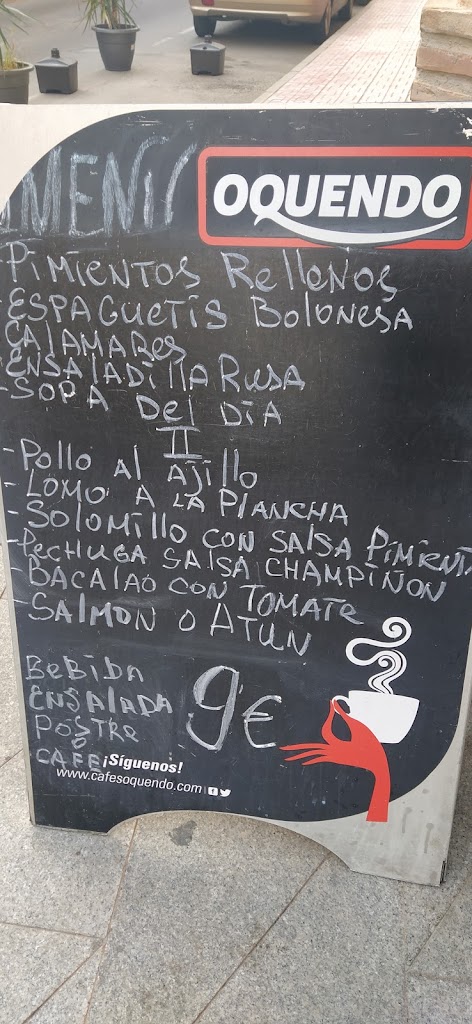 MENÚ
OQUENDO
PiMiENTOS RelleNOS
-ESPAGUETIS BoloNESA
CALAMARES
ENSALADILLA RUSA
-SOPA Del DÍA
II
-Pollo Al AJillo
-LOMO A LA PLANCHA
-SoloMillo CON SALSA PiMiENTA
-PECHUGA SALSA CHAMPIÑON
BACALAO CON TOMATE
-SALMON O ATUN
BeBiDA
ENSALADA
POSTRE
O
CAFE
9€
¡Síguenos!
www.cafesoquendo.com